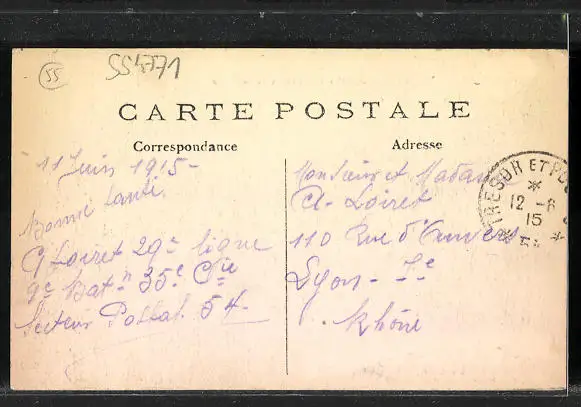 55
554771
CARTE POSTALE
Correspondance
Adresse
11 Juin 1915-
Bonne Santé
Loiret 29e ligne
9e Bat-n 35e Cie
Secteur Postal. 54-
Monsieur et Madame
A- Loiret
110 Rue d'Anvers-
Lyon - 7e
Rhône
TRESOR ET POS
*
12-6
15
*
*